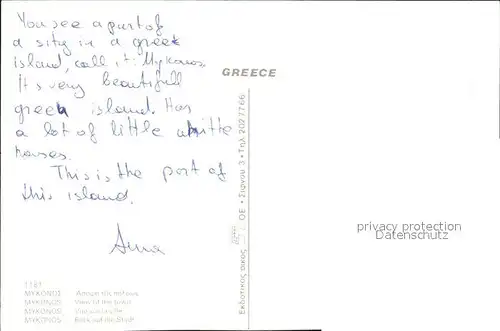 You see a part of
a sity in a greek
island, call it: Mykonos.
It's very beautifull
greek island. Has
a lot of little whitte
houses.
This is the port of
this island.
Anna
GREECE
Εκδοτικος οικος ΟΕ • Σιφνου 3 • Τηλ 2027766
1181
ΜΥΚΟΝΟΣ Αποψη της πολεως
MYKONOS View of the town
MYKONOS Vue de la ville
MYKONOS Blick auf die Stadt
privacy protection
Datenschutz